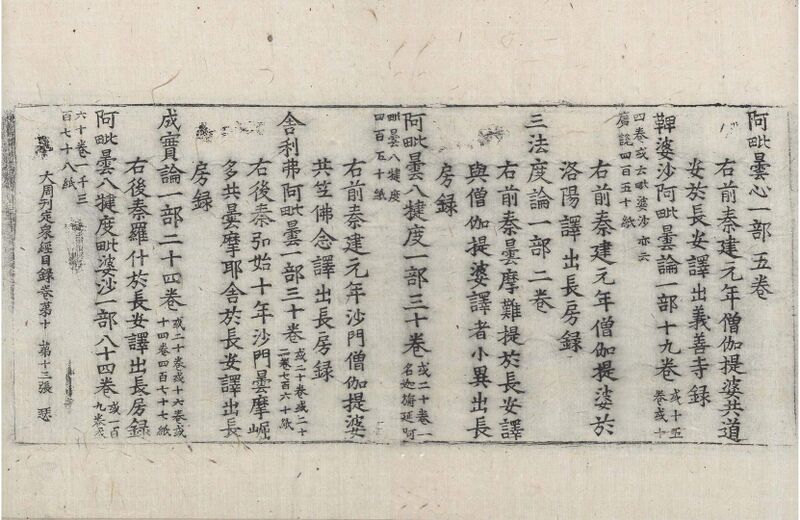 阿毗曇心一部五卷
右前秦建元年僧伽提婆共道
安於長安譯出義善寺録
鞞婆沙阿毗曇論一部十九卷 或十五
卷或十
四卷或云毗婆沙亦云
廣說四百五十紙
右前秦建元年僧伽提婆於
洛陽譯出長房録
三法度論一部二卷
右前秦曇摩難提於長安譯
與僧伽提婆譯者小異出長
房録
阿毗曇八犍度一部三十卷 或二十卷一
名迦旃延阿
毗曇八犍度
四百五十紙
右前秦建元年沙門僧伽提婆
共竺佛念譯出長房録
舍利弗阿毗曇一部三十卷 或二十卷或二十
二卷七百六十紙
右後秦弘始十年沙門曇摩崛
多共曇摩耶舍於長安譯出長
房録
成實論一部二十四卷 或二十卷或十六卷或
十四卷四百七十七紙
右後秦羅什於長安譯出長房録
阿毗曇八犍度毗婆沙一部八十四卷 或一百
九卷或
六十卷一千三
百七十八紙
大周刊定衆經目録卷第十 第十三張